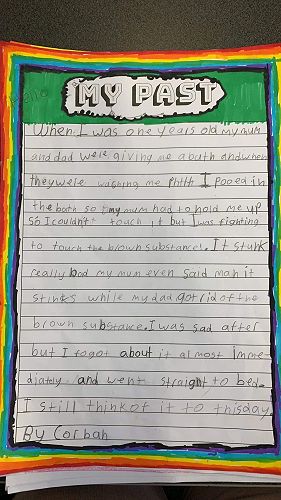 Hello
MY PAST
When I was one years old my mum
and dad were giving me a bath and when
they were washing me phhtt I pooed in
the bath so my mum had to hold me up
so I couldn't touch it but I was fighting
to touch the brown substance!. It stunk
really bad my mum even said man it
stinks while my dad got rid of the
brown substance. I was sad after
but I fogot about it almost imme-
diately and went straight to bed.
I still think of it to this day.
By Corbah